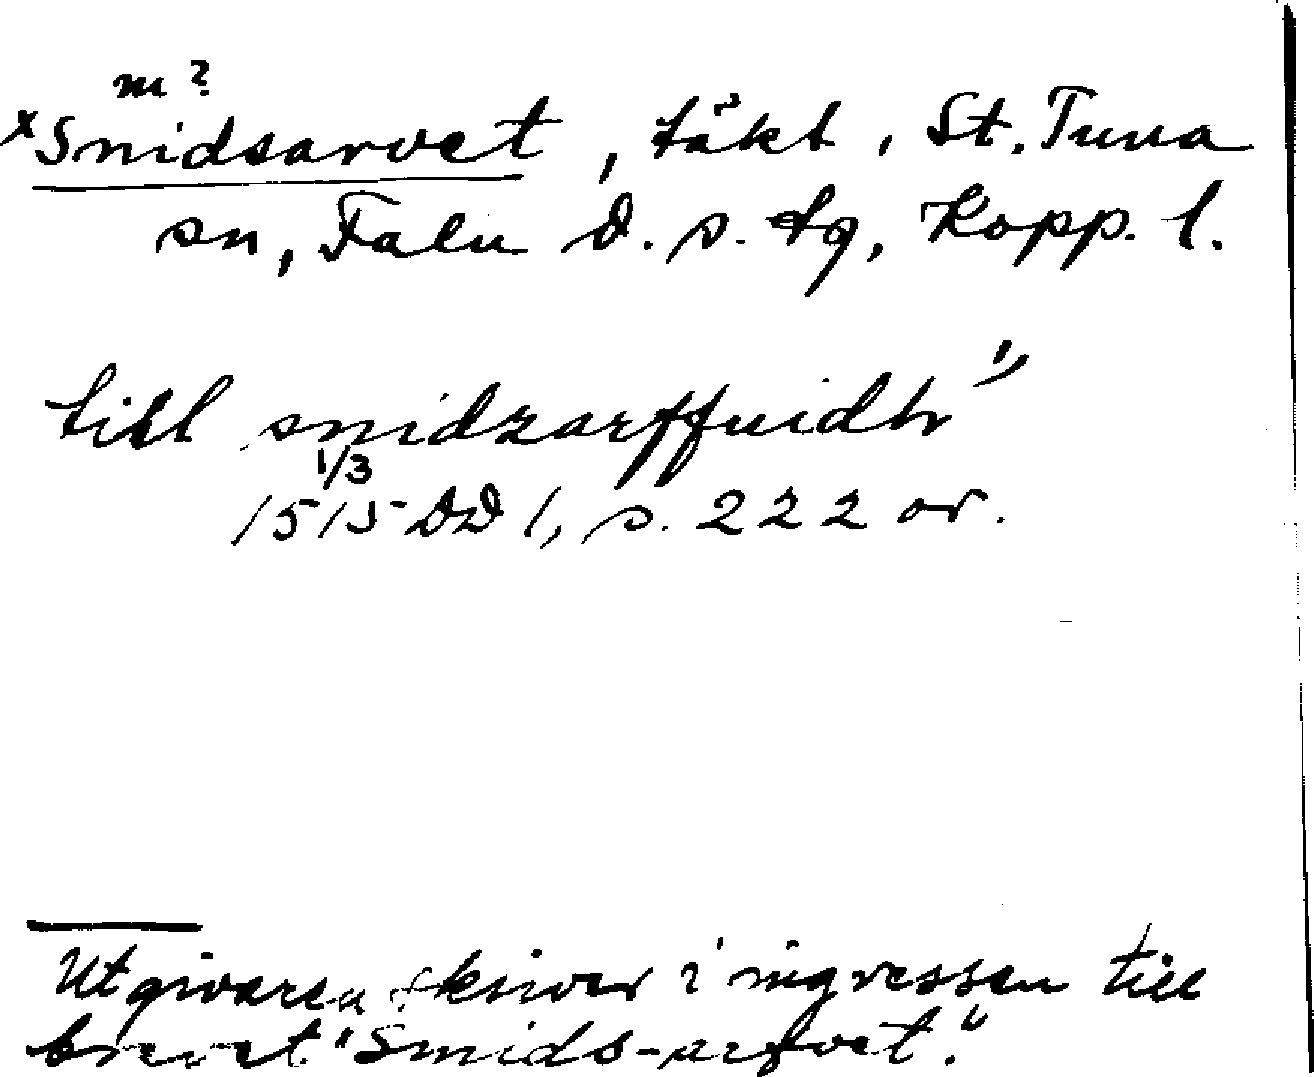 m?
x Snidsarvet, täkt, St. Tuna
sn, Falu D. s. tg, Kopp. l.
till snidzarffuidh 1)
1/3
1515 DD 1, s. 222 or.
Utgivaren skriver i ingressen till
brevet "Smids-arfvet."